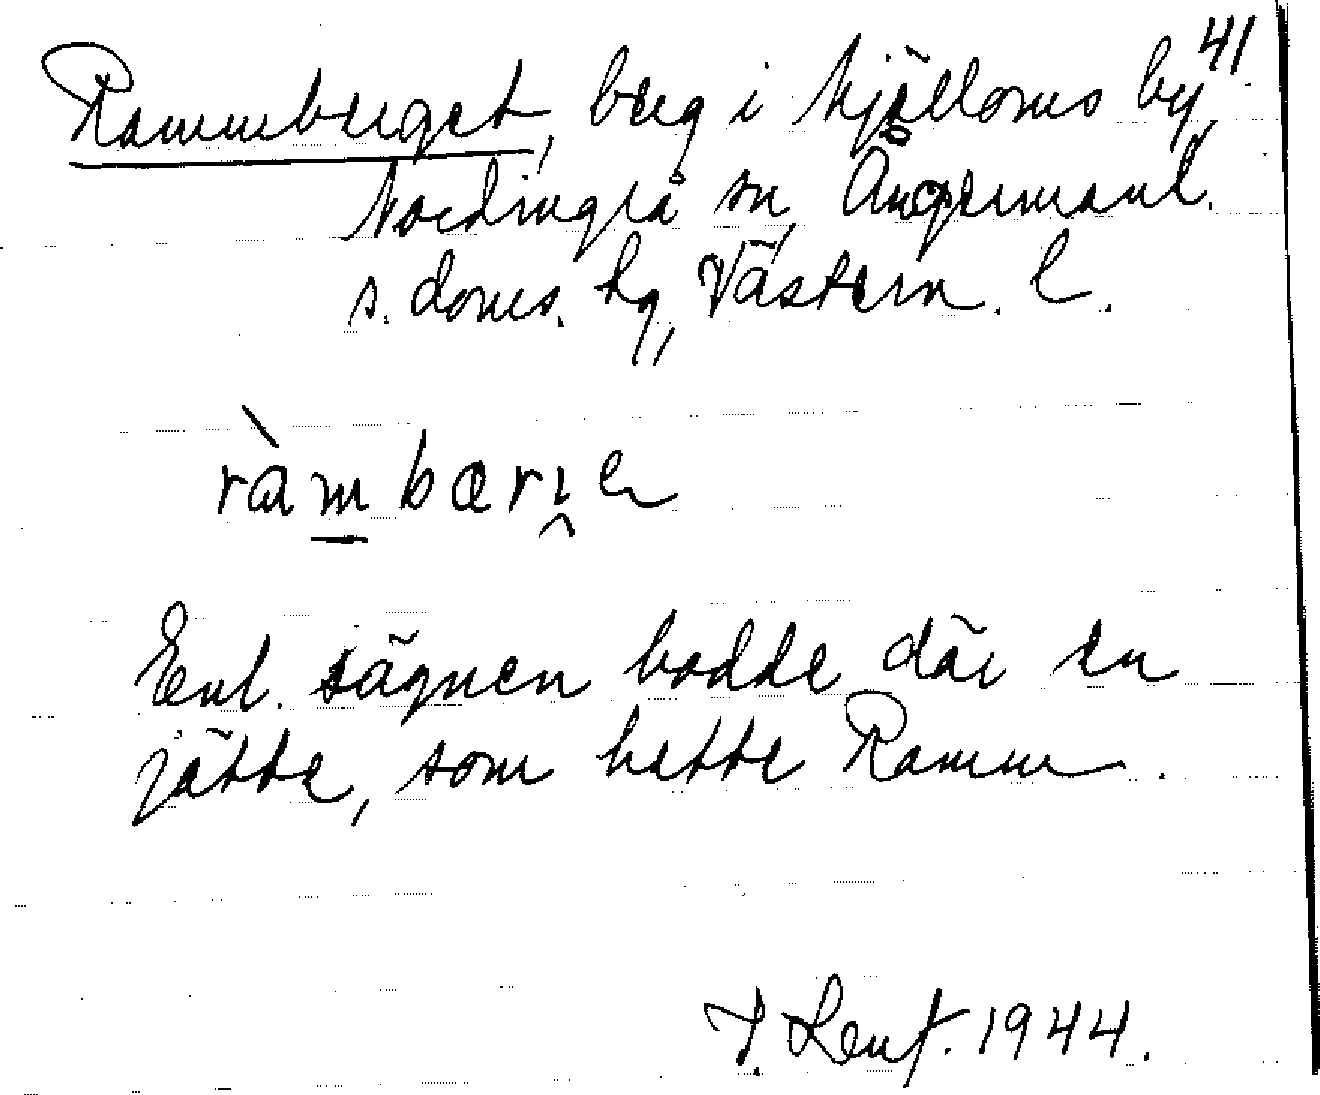 41
Rammberget, berg i Mjälloms by,
Nordingrå sn, Ångermanl.
s. doms. hg, Västern. l.
ràm bærɪ̯e
Enl. sägnen bodde där en
jätte, som hette Ramm.
1944.